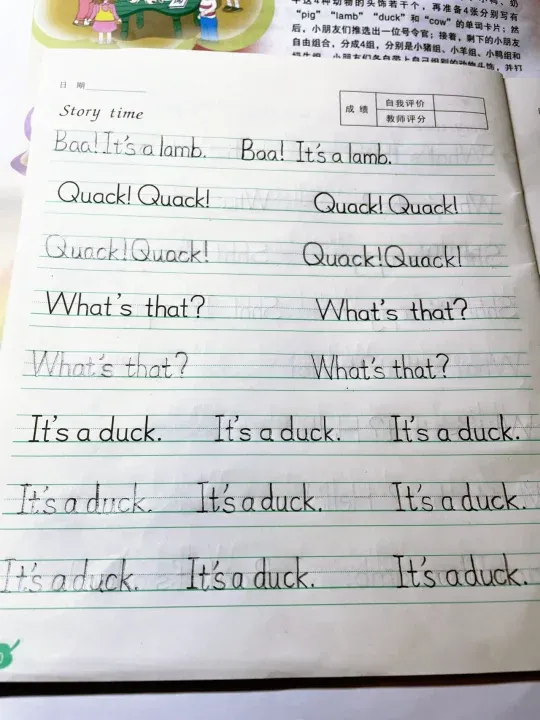 半这4种动物的头饰若干个，再准备4张分别写有
"pig" "lamb" "duck" 和 "cow" 的单词卡片；然
后，小朋友们推选出一位号令官；接着，剩下的小朋友
自由组合，分成4组，分别是小猪组、小羊组、小鸭组和
日 期
成 绩 自我评价
教师评分
Story time
Baa! It's a lamb. Baa! It's a lamb.
Quack! Quack! Quack! Quack!
Quack! Quack! Quack! Quack!
What's that? What's that?
What's that? What's that?
It's a duck. It's a duck. It's a duck.
It's a duck. It's a duck. It's a duck.
It's a duck. It's a duck. It's a duck.